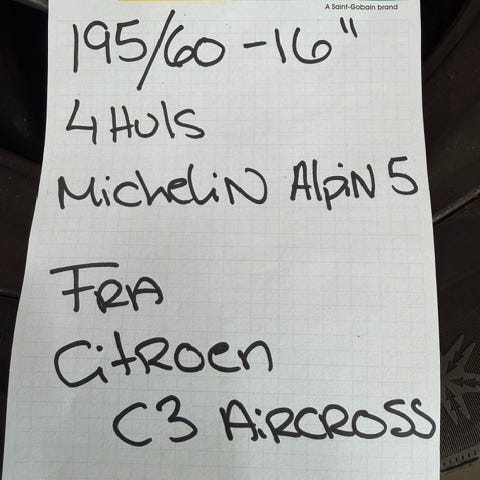 A Saint-Gobain brand
195/60-16"
4 Huls
Michelin Alpin 5
FRA
Citroen
C3 AIRCROSS